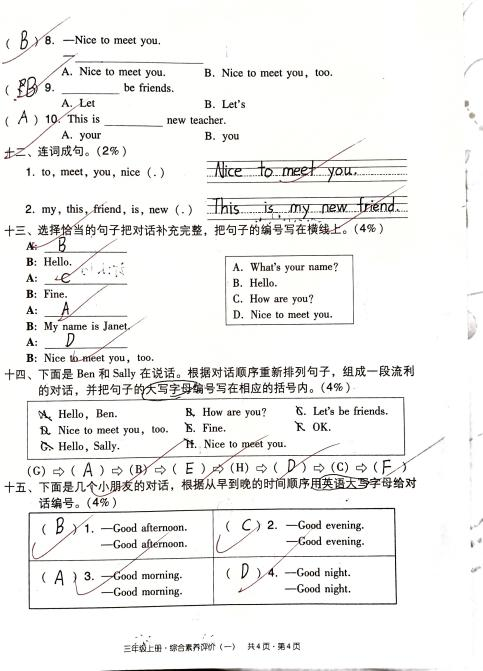 ( B ) 8. —Nice to meet you.
—
A. Nice to meet you. B. Nice to meet you, too.
( B ) 9. __________ be friends.
A. Let B. Let's
( A ) 10. This is __________ new teacher.
A. your B. you
十二、连词成句。(2%)
1. to, meet, you, nice (.) Nice to meet you.
2. my, this, friend, is, new (.) This is my new friend.
十三、选择恰当的句子把对话补充完整，把句子的编号写在横线上。(4%)
A: B
B: Hello.
A: C
B: Fine.
A: A
B: My name is Janet.
A: D
B: Nice to meet you, too.
A. What's your name?
B. Hello.
C. How are you?
D. Nice to meet you.
十四、下面是 Ben 和 Sally 在说话。根据对话顺序重新排列句子，组成一段流利
的对话，并把句子的大写字母编号写在相应的括号内。(4%)
A. Hello, Ben. B. How are you? C. Let's be friends.
D. Nice to meet you, too. E. Fine. F. OK.
G. Hello, Sally. H. Nice to meet you.
(G) ⇨ ( A ) ⇨ (B) ⇨ ( E ) ⇨ (H) ⇨ ( D ) ⇨ (C) ⇨ ( F )
十五、下面是几个小朋友的对话，根据从早到晚的时间顺序用英语大写字母给对
话编号。(4%)
( B ) 1. —Good afternoon. ( C ) 2. —Good evening.
—Good afternoon. —Good evening.
( A ) 3. —Good morning. ( D ) 4. —Good night.
—Good morning. —Good night.
三年级上册·综合素养评价(一) 共4页·第4页